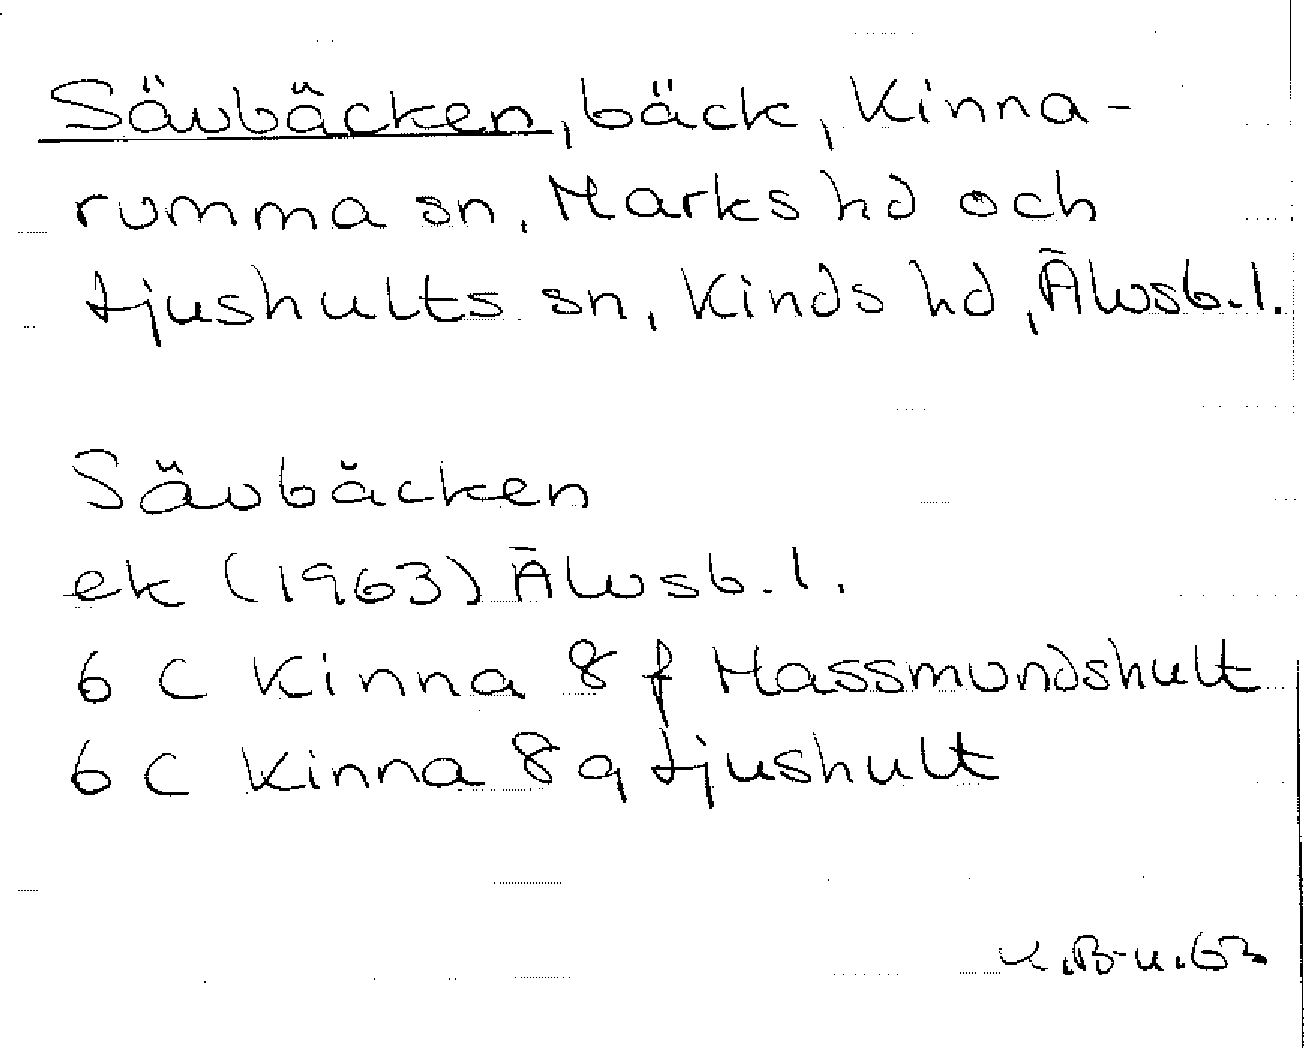 Sävbäcken, bäck, Kinna-
rumma sn, Marks hd och
Ljushults sn, Kinds hd, Älvsb. l.
Sävbäcken
ek (1963) Älvsb. l.
6 C Kinna 8 f Hassmundshult
6 C Kinna 8 g Ljushult